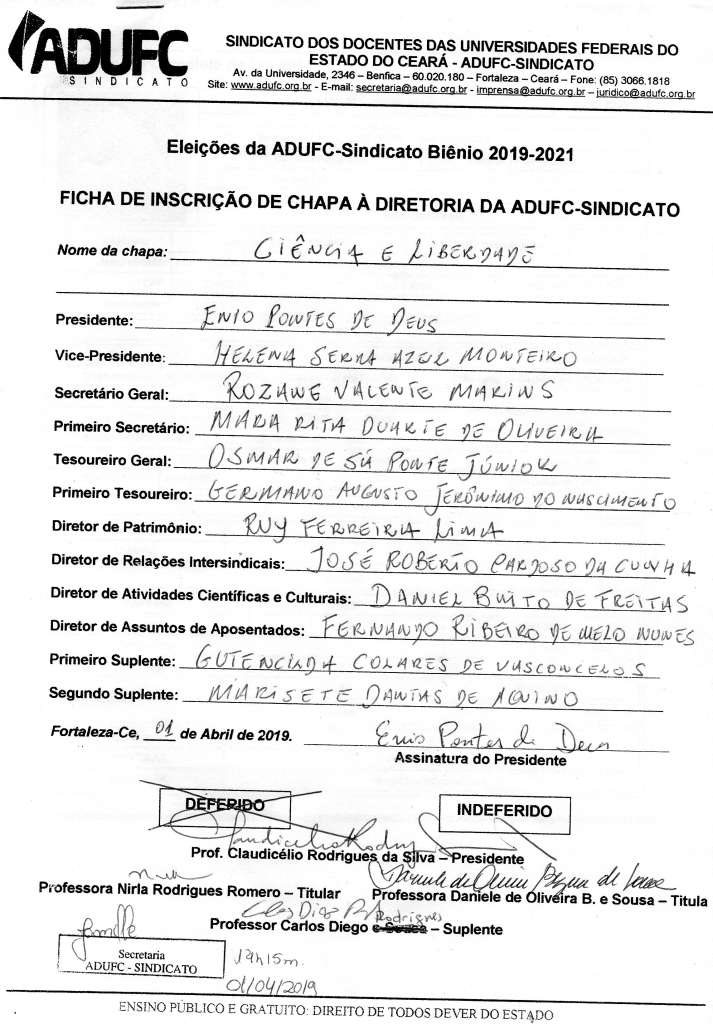 ADUFC
SINDICATO
SINDICATO DOS DOCENTES DAS UNIVERSIDADES FEDERAIS DO
ESTADO DO CEARÁ - ADUFC-SINDICATO
Av. da Universidade, 2346 – Benfica – 60.020.180 – Fortaleza – Ceará – Fone: (85) 3066.1818
Site: www.adufc.org.br - E-mail: secretaria@adufc.org.br - imprensa@adufc.org.br – juridico@adufc.org.br
Eleições da ADUFC-Sindicato Biênio 2019-2021
FICHA DE INSCRIÇÃO DE CHAPA À DIRETORIA DA ADUFC-SINDICATO
Nome da chapa: CIÊNCIA E LIBERDADE
Presidente: ENIO PONTES DE DEUS
Vice-Presidente: HELENA SERRA AZUL MONTEIRO
Secretário Geral: ROZANE VALENTE MARINS
Primeiro Secretário: MARIA RITA DUARTE DE OLIVEIRA
Tesoureiro Geral: OSMAR DE SÁ PONTE JÚNIOR
Primeiro Tesoureiro: GERMANO AUGUSTO JERÔNIMO DO NASCIMENTO
Diretor de Patrimônio: RUY FERREIRA LIMA
Diretor de Relações Intersindicais: JOSÉ ROBERTO CARDOSO DA CUNHA
Diretor de Atividades Científicas e Culturais: DANIEL BRITO DE FREITAS
Diretor de Assuntos de Aposentados: FERNANDO RIBEIRO DE MELO NUNES
Primeiro Suplente: GUTENCILDA COLARES DE VASCONCELOS
Segundo Suplente: MARISETE DANTAS DE AQUINO
Fortaleza-Ce, 01 de Abril de 2019. Enio Pontes de Deus
Assinatura do Presidente
DEFERIDO INDEFERIDO
Claudicélio Rodrigues
Prof. Claudicélio Rodrigues da Silva – Presidente
Daniele de Oliveira Bezerra de Sousa
Professora Nirla Rodrigues Romero – Titular Professora Daniele de Oliveira B. e Sousa – Titula
Rodrigues
Professor Carlos Diego e Sousa – Suplente
Secretaria
ADUFC - SINDICATO
19h15m.
01/04/2019
ENSINO PÚBLICO E GRATUITO: DIREITO DE TODOS DEVER DO ESTADO